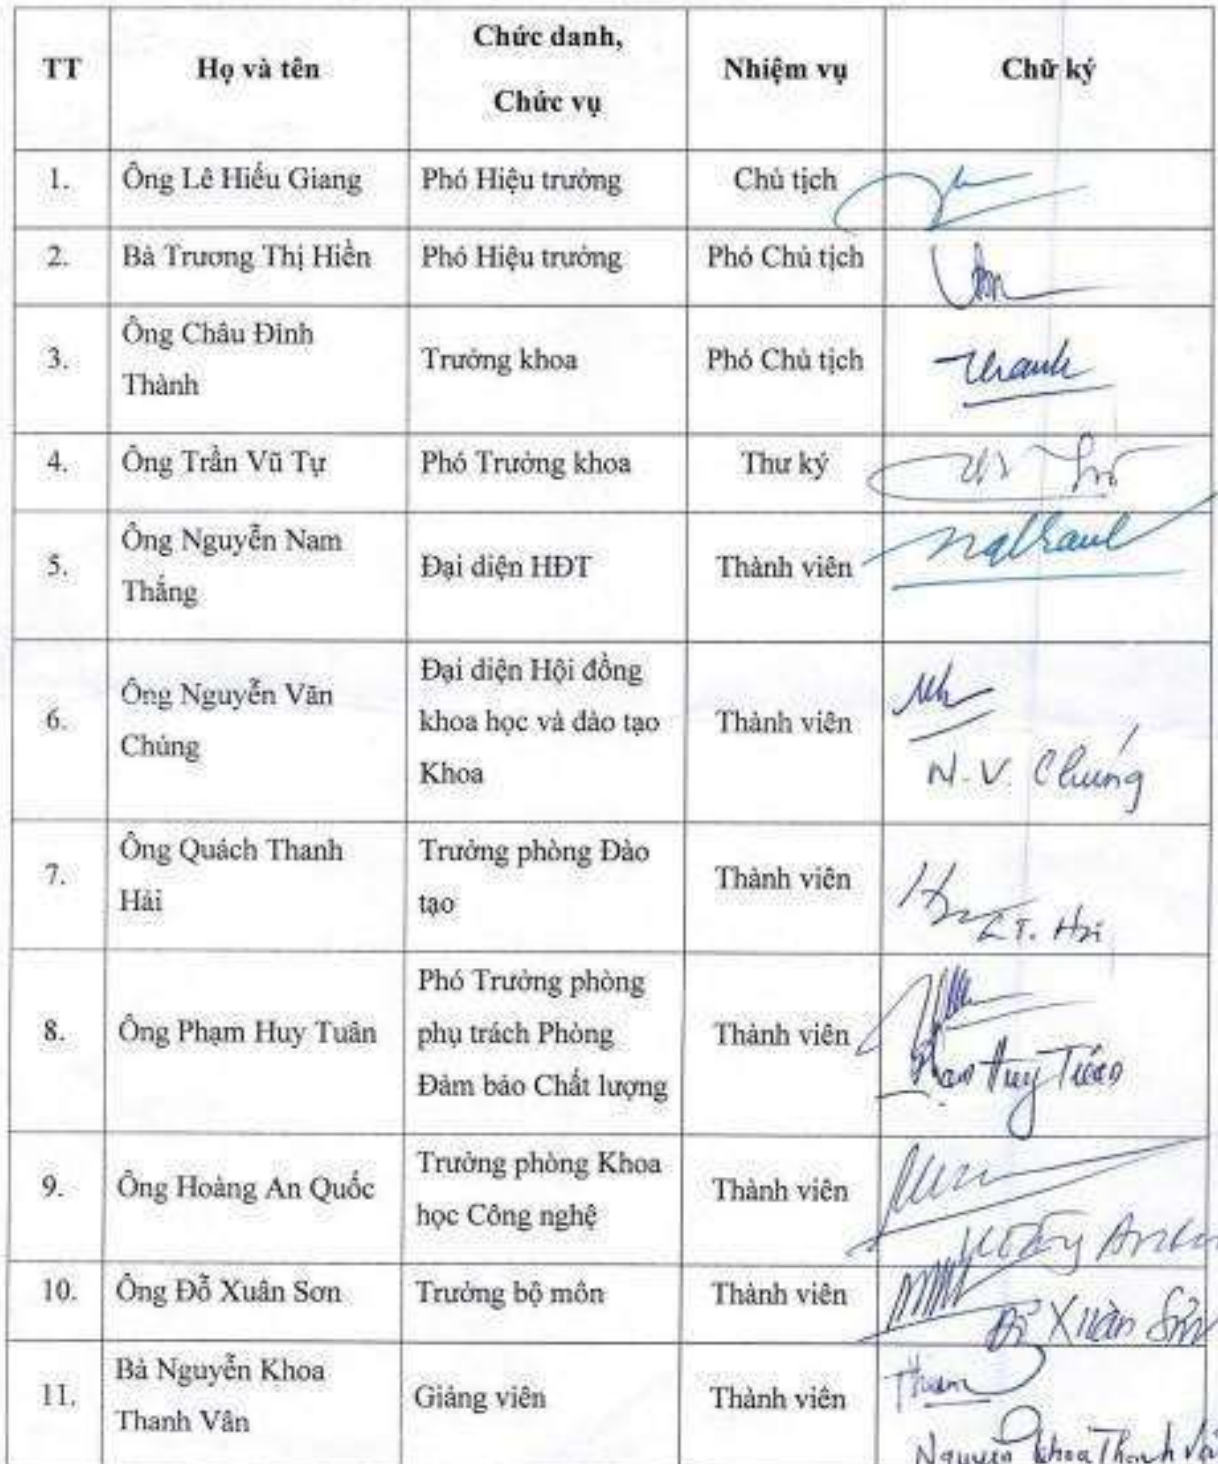 TT
Họ và tên
Chức danh,
Chức vụ
Nhiệm vụ
Chữ ký
1.
Ông Lê Hiếu Giang
Phó Hiệu trưởng
Chủ tịch
2.
Bà Trương Thị Hiền
Phó Hiệu trưởng
Phó Chủ tịch
3.
Ông Châu Đình
Thành
Trưởng khoa
Phó Chủ tịch
Thanh
4.
Ông Trần Vũ Tự
Phó Trưởng khoa
Thư ký
5.
Ông Nguyễn Nam
Thắng
Đại diện HĐT
Thành viên
6.
Ông Nguyễn Văn
Chúng
Đại diện Hội đồng
khoa học và đào tạo
Khoa
Thành viên
N.V. Chúng
7.
Ông Quách Thanh
Hải
Trưởng phòng Đào
tạo
Thành viên
8.
Ông Phạm Huy Tuân
Phó Trưởng phòng
phụ trách Phòng
Đảm bảo Chất lượng
Thành viên
Phạm Huy Tuân
9.
Ông Hoàng An Quốc
Trưởng phòng Khoa
học Công nghệ
Thành viên
10.
Ông Đỗ Xuân Sơn
Trưởng bộ môn
Thành viên
Đỗ Xuân Sơn
11.
Bà Nguyễn Khoa
Thanh Vân
Giảng viên
Thành viên
Nguyễn Khoa Thanh Vân